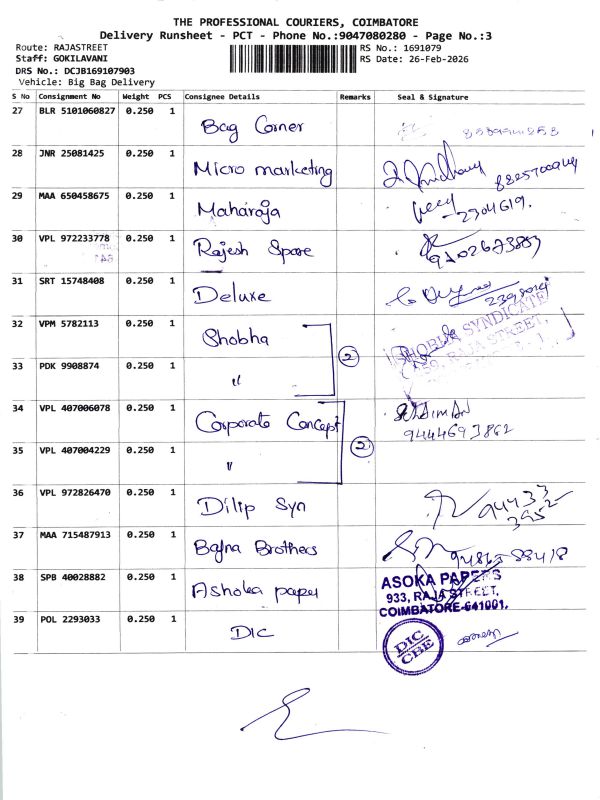 THE PROFESSIONAL COURIERS, COIMBATORE
Delivery Runsheet - PCT - Phone No.:9047080280 - Page No.:3
Route: RAJASTREET
RS No.: 1691079
Staff: GOKILAVANI
RS Date: 26-Feb-2026
DRS No.: DCJB169107903
Vehicle: Big Bag Delivery
S No Consignment No Weight PCS Consignee Details Remarks Seal & Signature
27 BLR 5101060827 0.250 1 Bag Corner
28 JNR 25081425 0.250 1 Micro marketing
29 MAA 650458675 0.250 1 Maharaja
30 VPL 972233778 0.250 1 Rajesh Spare
31 SRT 15748408 0.250 1 Deluxe
32 VPM 5782113 0.250 1 Shobha
SHOBHA SYNDICATE
RAJA STREET,
2
33 PDK 9908874 0.250 1 "
34 VPL 407006078 0.250 1 Corporate Concept
9444693862
2
35 VPL 407004229 0.250 1 "
36 VPL 972826470 0.250 1 Dilip Syn
94433
3952
37 MAA 715487913 0.250 1 Bafna Brothers
38 SPB 40028882 0.250 1 Ashoka paper
ASOKA PAPERS
933, RAJA STREET,
COIMBATORE-641001.
39 POL 2293033 0.250 1 DIC
DIC
CBE